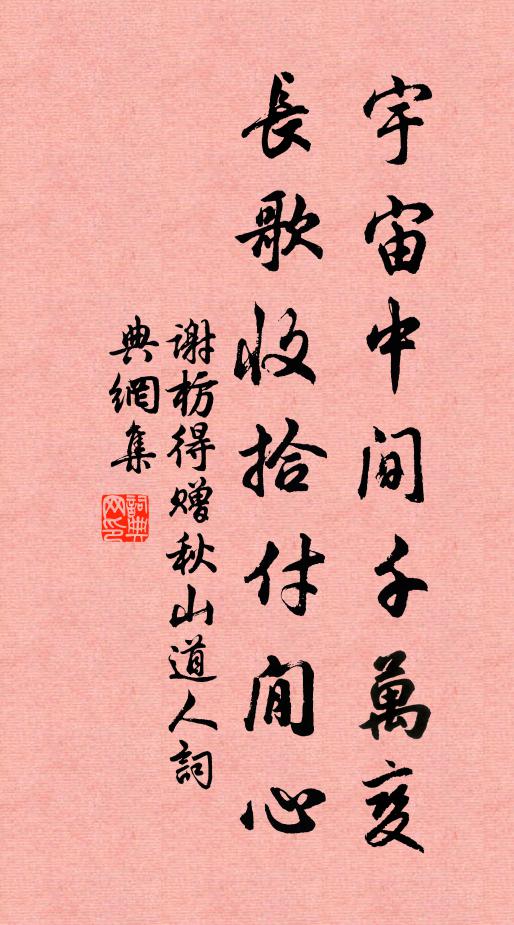 宇宙中間千萬变
長歌收拾付閒心
謝枋得赠秋山道人詞
典網集
詞典网印